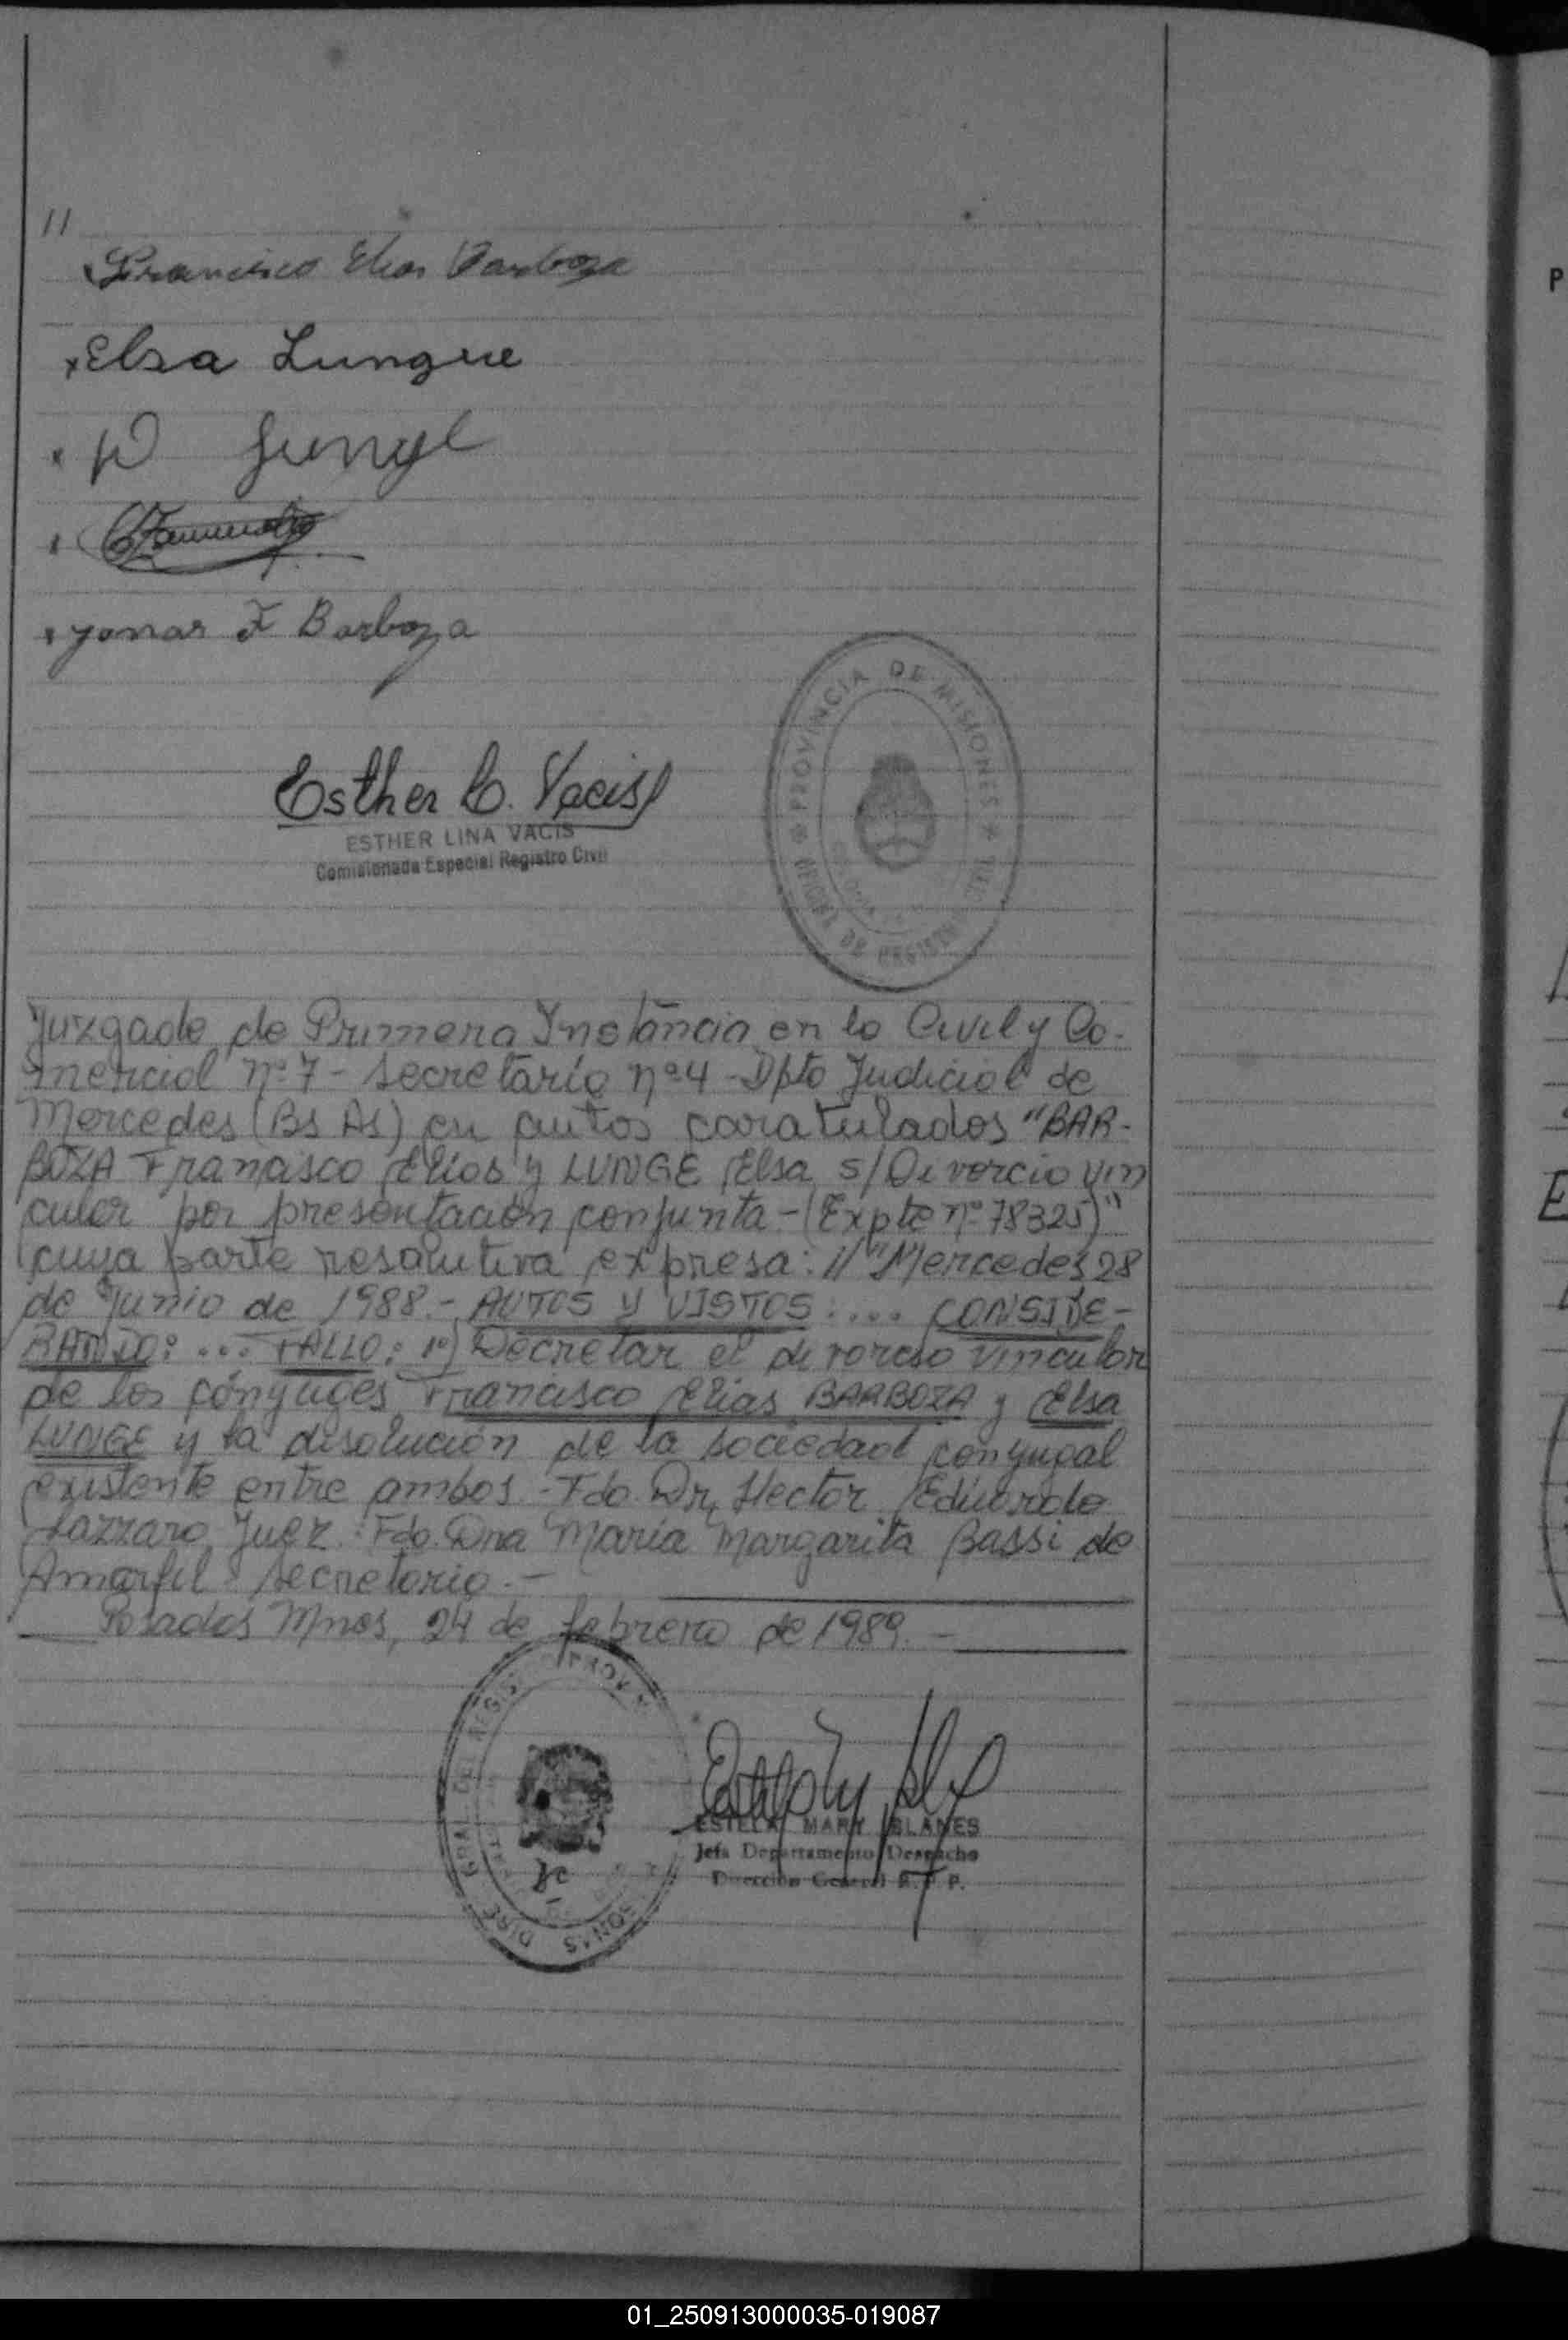 11
Francisco Elias Barboza
x Elsa Lungue
x W Lunge
x yomar F Barboza
PROVINCIA DE MISIONES
OFICINA DE REGISTRO CIVIL
Esther L. Vacis
ESTHER LINA VACIS
Comisionada Especial Registro Civil
Juzgado de Primera Instancia en lo Civil y Co-
mercial nº 7 - Secretaría nº 4 - Dpto Judicial de
Mercedes (Bs As) en autos caratulados "BAR-
BOZA Francisco Elias y LUNGE Elsa s/Divorcio vin
cular por presentación conjunta - (Expte nº 78325)"
cuya parte resolutiva expresa: // "Mercedes 28
de Junio de 1988.- AUTOS Y VISTOS: .... CONSIDE-
RANDO: ... FALLO: 1º) Decretar el divorcio vincular
de los cónyuges Francisco Elias BARBOZA y Elsa
LUNGE y la disolución de la sociedad conyugal
existente entre ambos.- Fdo. Dr. Hector Eduardo
Lazzaro Juez. Fdo. Dra Maria Margarita Bassi de
Amarfil Secretaria.-
Posadas Mnes, 24 de febrero de 1989.-
ESTELA MARY BLANES
Jefa Departamento Despacho
Dirección General R.P.P.
P
E
01_250913000035-019087